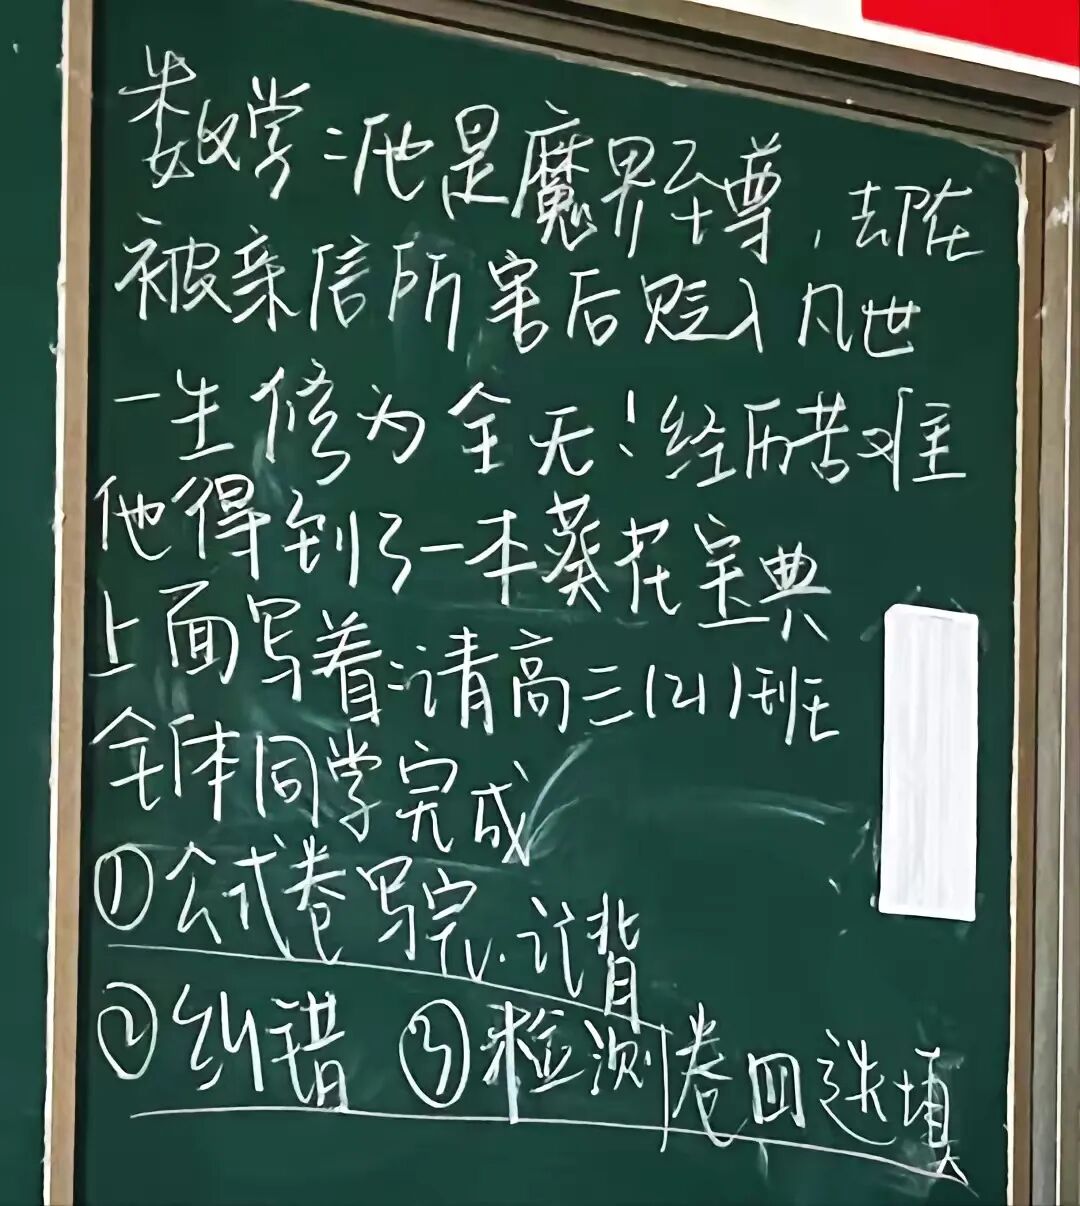 数学:他是魔界至尊,却在
被亲信所害后贬入凡世
一生修为全无!经历苦难
他得到了一本葵花宝典
上面写着:请高三(21)班
全体同学完成
①公式卷写完.记背
②纠错 ③检测卷四选填